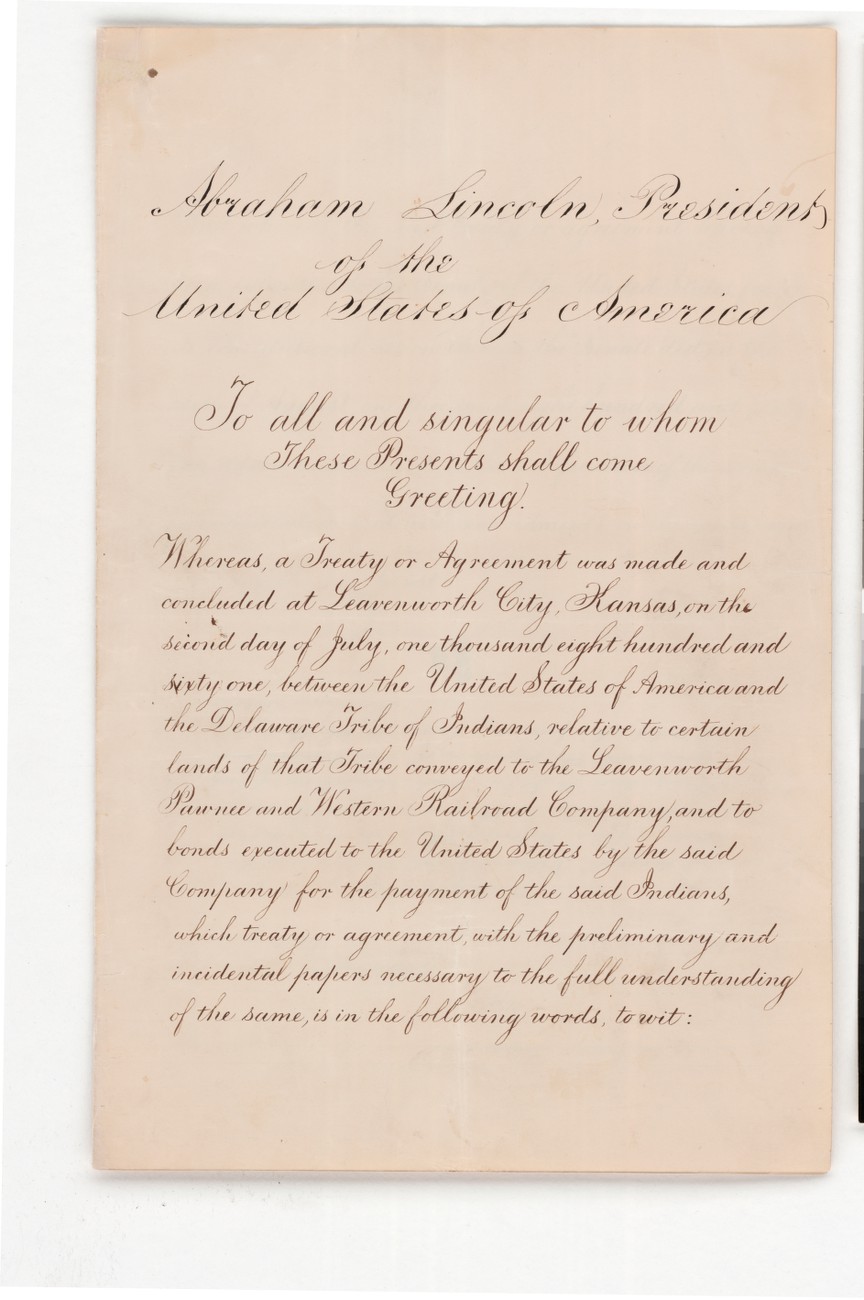 Abraham Lincoln, President
of the
United States of America
To all and singular to whom
These Presents shall come
Greeting.
Whereas, a Treaty or Agreement was made and
concluded at Leavenworth City, Kansas, on the
second day of July, one thousand eight hundred and
sixty one, between the United States of America and
the Delaware Tribe of Indians, relative to certain
lands of that Tribe conveyed to the Leavenworth
Pawnee and Western Railroad Company, and to
bonds executed to the United States by the said
Company for the payment of the said Indians,
which treaty or agreement, with the preliminary and
incidental papers necessary to the full understanding
of the same, is in the following words, to wit: